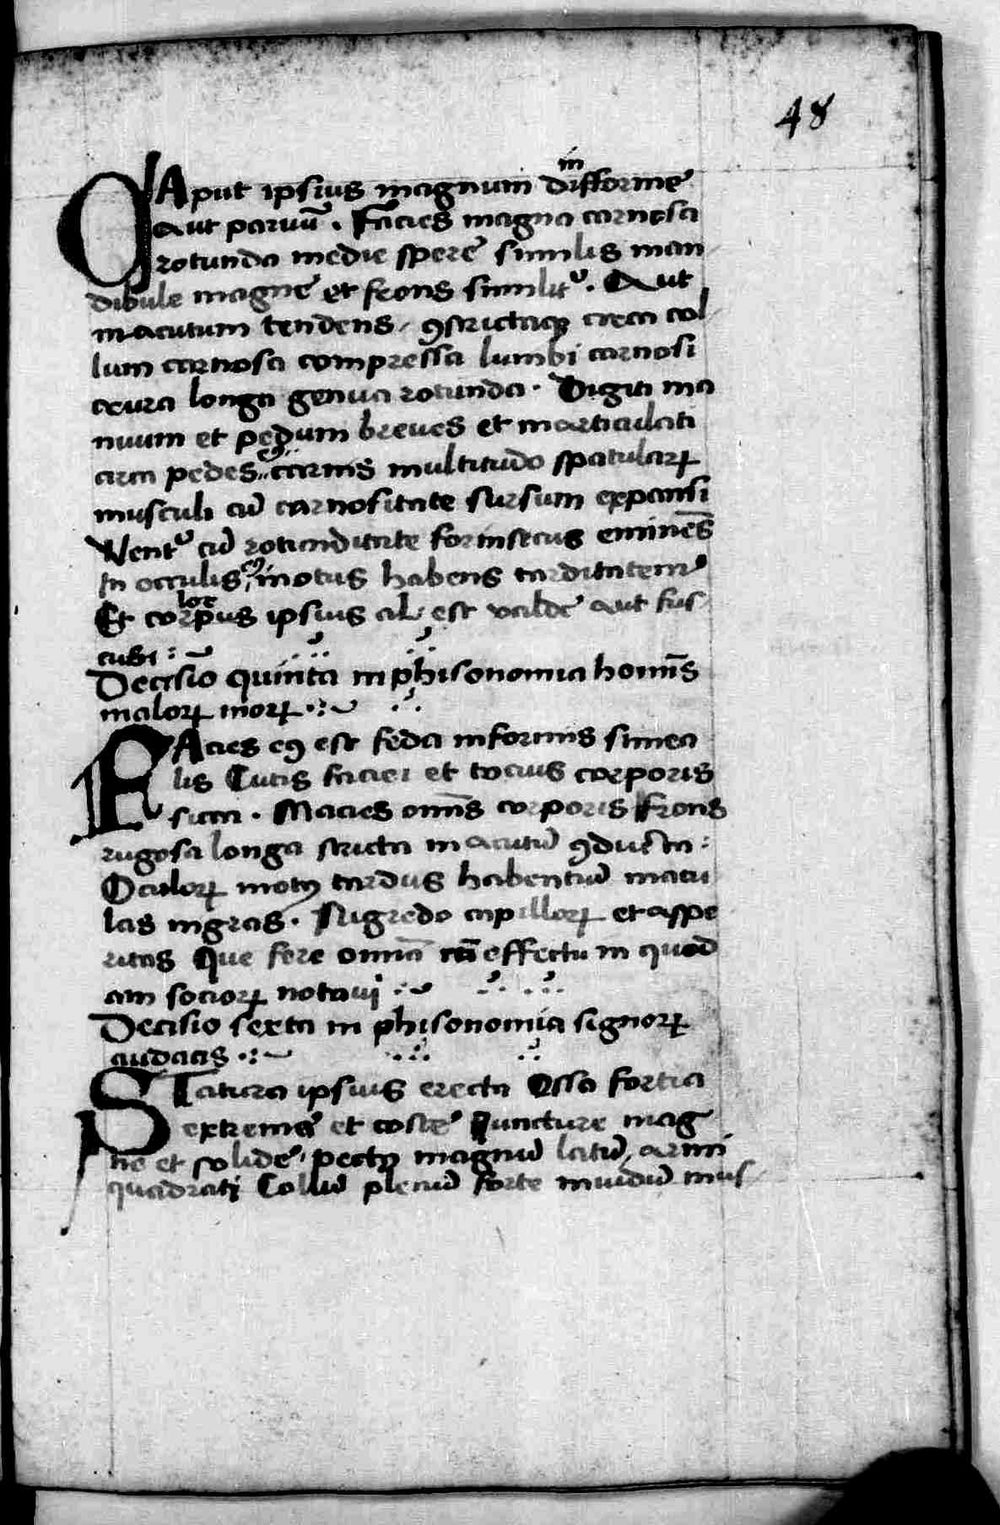 48
in
CAput ipsius magnum difforme
aut paruū . Facies magna carnosa
rotunda medie spere similis man
dibule magne et frons similitˀ . Aut
in acutum tendens / ꝯstrictaqꝫ circa col
lum carnosa compressa lumbi carnosi
crura longa genua rotunda . Digiti ma
nuum et pedum breues et in articulati
circa pedes eiꝰ carnis multitudo spatularꝝ
musculi cū carnositate sursum expansi
Ventˀ cū rotunditate forinsecus eminēs
In occulis eiꝰ motus habens tarditatem
lor
Et corpus ipsius al est valde aut fus
cusi :~
Decisio quinta in phisonomia homīs
malorꝝ morꝝ .:~
FAcies eiꝰ est feda informis simea
lis Cutis faciei et tocius corporis
sicca . Macies omīs corporis Frons
rugosa longa stricta in acutū ꝯducta :
Oculorꝝ motꝰ tardus habenciū macu
las nigras . Nigredo capillorꝝ et aspe
ritas Que fere omnia effectu in quod
am sociorꝝ notaui .:~
Decisio sexta in phisonomia signorꝝ
audacis .:~
STatura ipsius erecta Ossa fortia
extrema et coste Iuncture mag
ne et solide pectꝰ magnū latū armi
quadrati Collū plenū forte nuidū mus